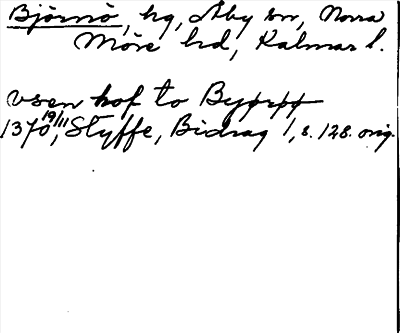 Björnö, hg, Åby sn, Norra
Möre hd, Kalmar l.
vsen hof to Byørøø
1370 19/11, Styffe, Bidrag 1, s. 128. orig.